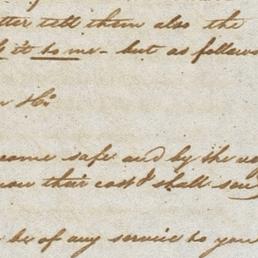 tter tell them also the
it to me - but as follows
come safe and by the
now their cost I shall sen
be of any service to you